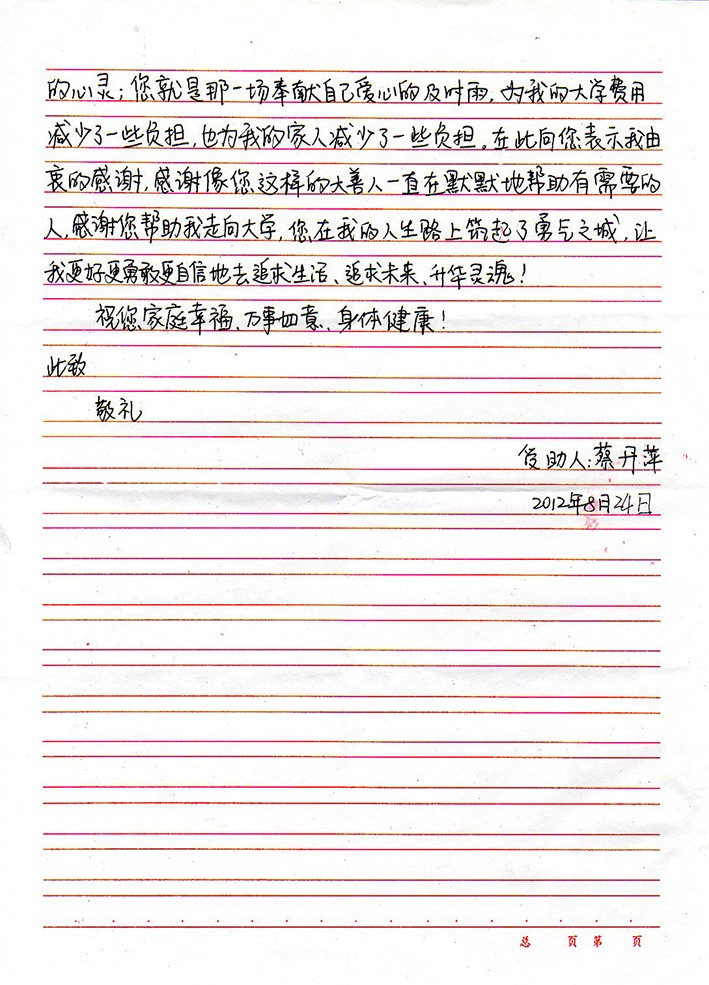 的心灵；您就是那一场奉献自己爱心的及时雨，为我的大学费用
减少了一些负担，也为我的家人减少了一些负担。在此向您表示我由
衷的感谢，感谢像您这样的大善人一直在默默地帮助有需要的
人，感谢您帮助我走向大学，您在我的人生路上筑起了勇气之城，让
我更好更勇敢更自信地去追求生活、追求未来、升华灵魂！
祝您家庭幸福、万事如意、身体健康！
此致
敬礼
受助人：蔡丹萍
2012年8月24日
总 页 第 页